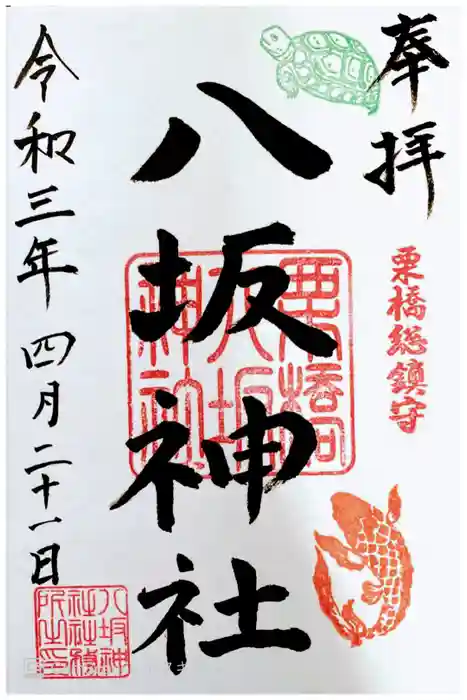 奉拝
栗橋総鎮守
八坂神社
栗橋八坂神社
令和三年四月二十一日
八坂神社社務所之印